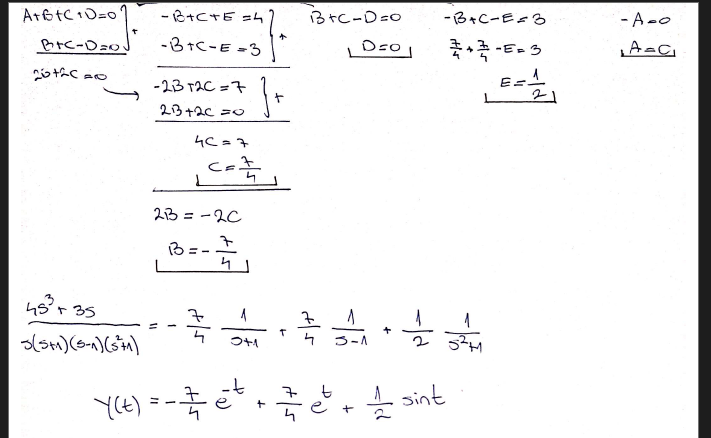 A+B+C+D=0 } +
B+C-D=0
2B+2C=0
-B+C+E=4 } +
-B+C-E=3
-2B+2C=7 } +
2B+2C=0
4C=7
C=7/4
2B=-2C
B=-7/4
B+C-D=0
D=0
-B+C-E=3
7/4+7/4-E=3
E=1/2
-A=0
A=C
4s³+3s / s(s+1)(s-1)(s²+1) = -7/4 1/s+1 + 7/4 1/s-1 + 1/2 1/s²+1
y(t) = -7/4 e^-t + 7/4 e^t + 1/2 sint